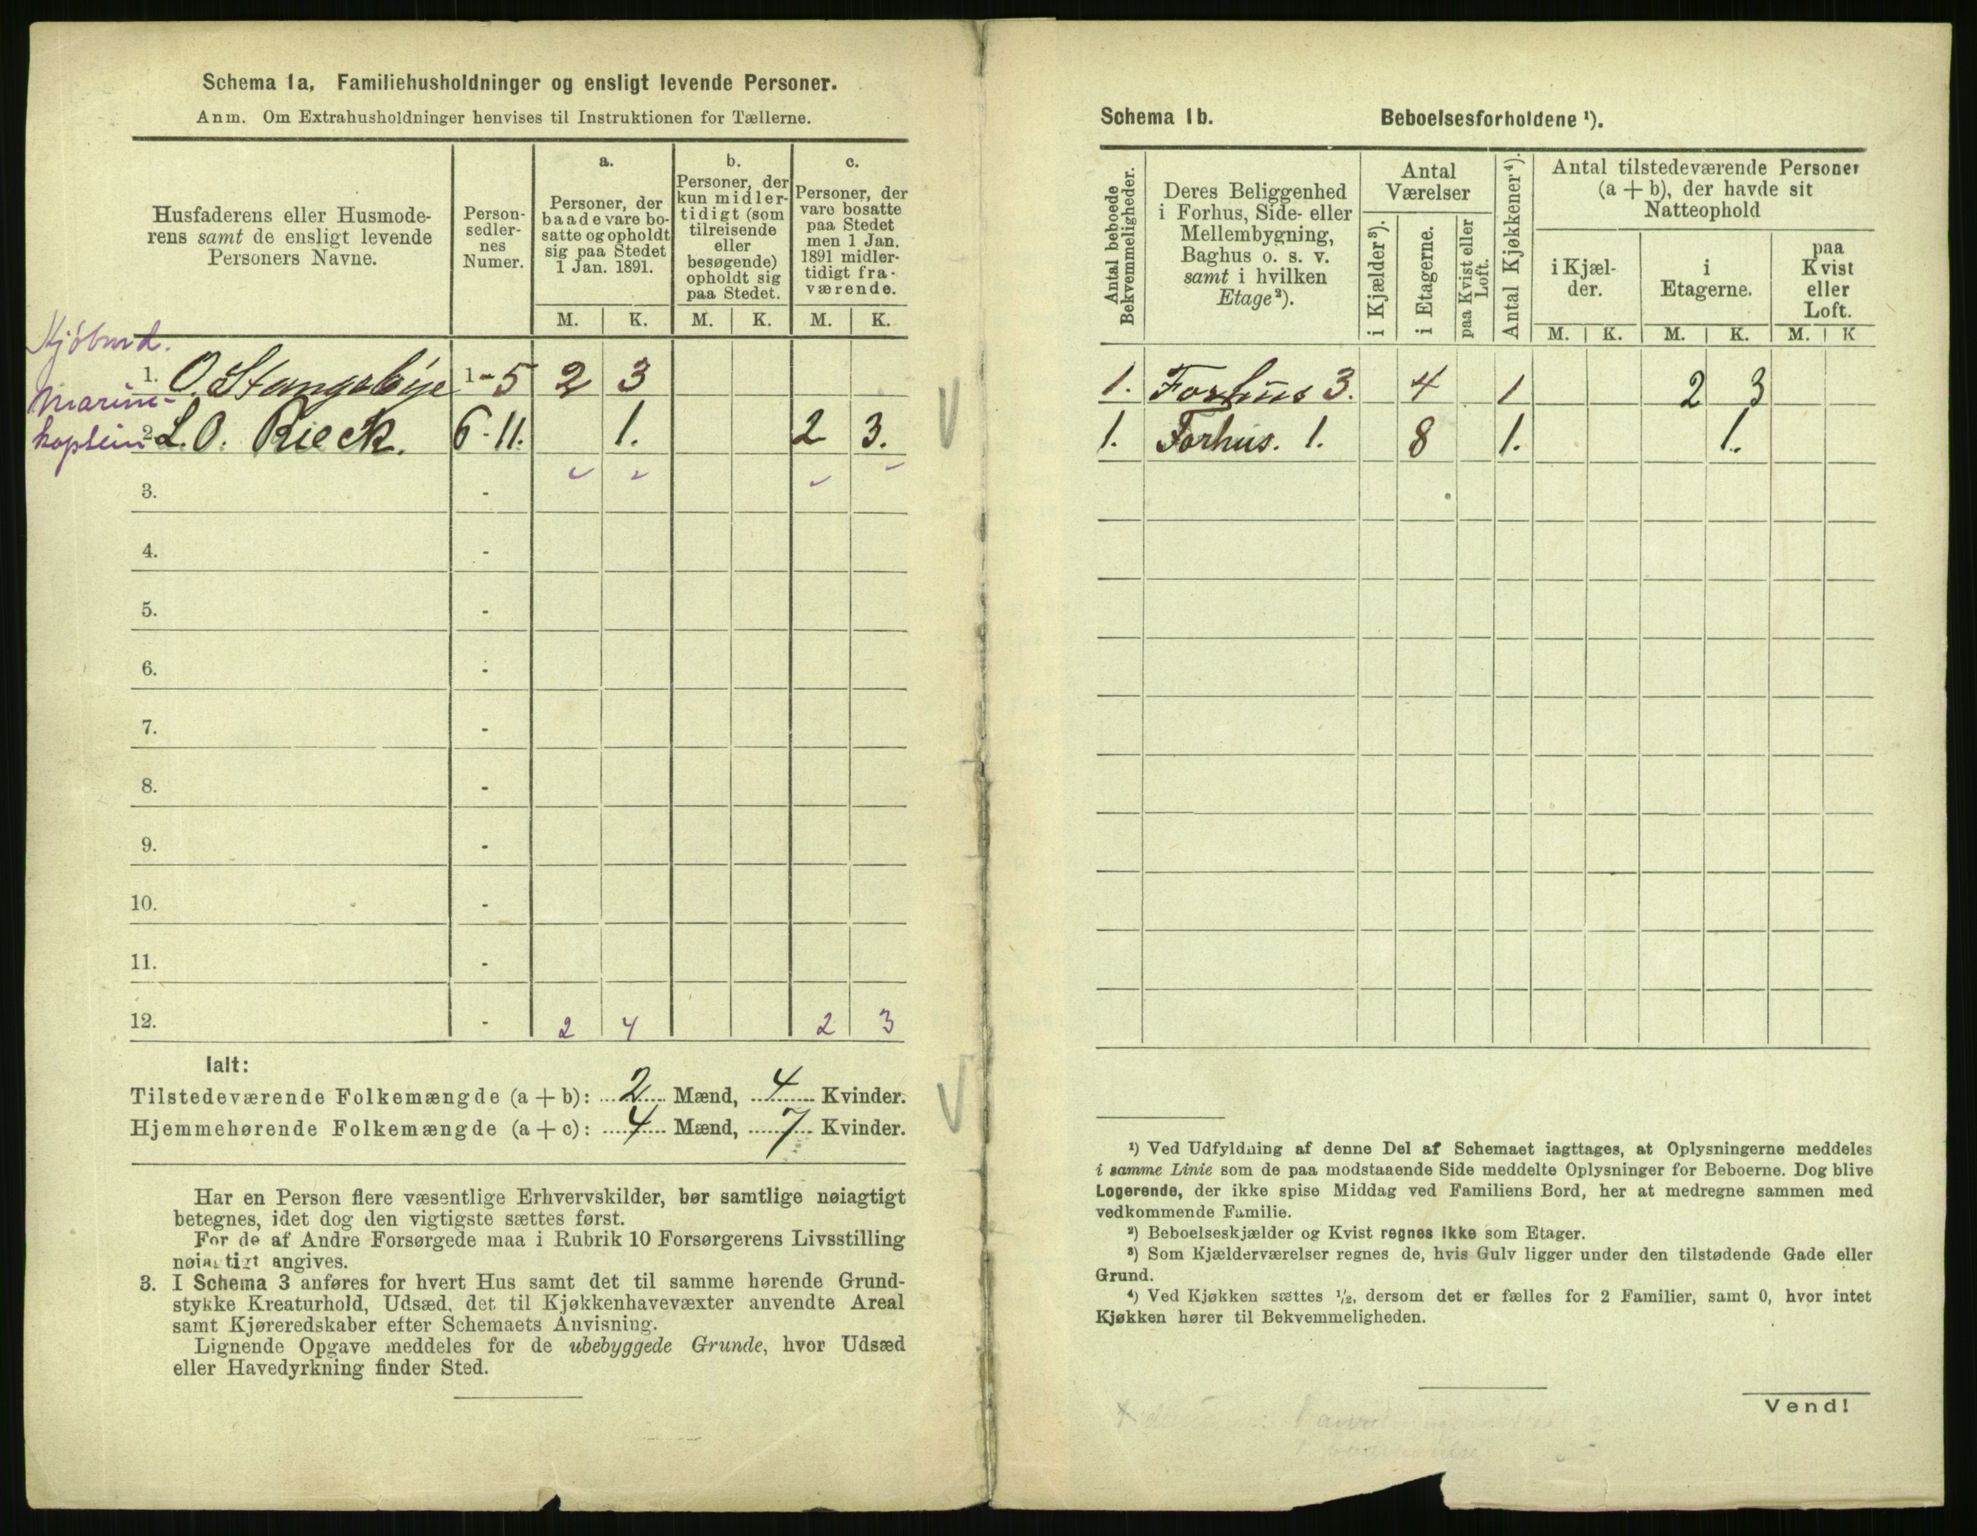 Schema 1a, Familiehusholdninger og ensligt levende Personer.
Anm. Om Extrahusholdninger henvises til Instruktionen for Tællerne.
Husfaderens eller Husmode-
rens samt de ensligt levende
Personers Navne.
Person-
sedler-
nes
Numer.
a.
Personer, der
baade vare bo-
satte og opholdt
sig paa Stedet
1 Jan. 1891.
b.
Personer, der
kun midler-
tidigt (som
tilreisende
eller
besøgende)
opholdt sig
paa Stedet.
c.
Personer, der
vare bosatte
paa Stedet
men 1 Jan.
1891 midler-
tidigt fra-
værende.
M. K. M. K. M. K.
Kjøbmd.
1. O. Stangebye 1-5 2 3
Marine-
kaptein 2. L. O. Rieck. 6-11. 1. 2 3.
3. -
4. -
5. -
6. -
7. -
8. -
9. -
10. -
11. -
12. - 2 4 2 3
Ialt:
Tilstedeværende Folkemængde (a + b): 2 Mænd, 4 Kvinder.
Hjemmehørende Folkemængde (a + c): 4 Mænd, 7 Kvinder.
Har en Person flere væsentlige Erhvervskilder, bør samtlige nøiagtigt
betegnes, idet dog den vigtigste sættes først.
For de af Andre Forsørgede maa i Rubrik 10 Forsørgerens Livsstilling
nøiagtigt angives.
3. I Schema 3 anføres for hvert Hus samt det til samme hørende Grund-
stykke Kreaturhold, Udsæd, det til Kjøkkenhavevæxter anvendte Areal
samt Kjøreredskaber efter Schemaets Anvisning.
Lignende Opgave meddeles for de ubebyggede Grunde, hvor Udsæd
eller Havedyrkning finder Sted.
Schema 1b. Beboelsesforholdene ¹).
Antal beboede
Bekvemmeligheder.
Deres Beliggenhed
i Forhus, Side- eller
Mellembygning,
Baghus o. s. v.
samt i hvilken
Etage ²).
Antal
Værelser
i Kjælder ³).
i Etagerne.
paa Kvist eller
Loft.
Antal Kjøkkener ⁴).
Antal tilstedeværende Personer
(a + b), der havde sit
Natteophold
i Kjæl-
der.
i
Etagerne.
paa
Kvist
eller
Loft.
M. K. M. K. M. K
1. Forhus 3. 4 1 2 3
1. Forhus. 1. 8 1. 1.
¹) Ved Udfyldning af denne Del af Schemaet iagttages, at Oplysningerne meddeles
i samme Linie som de paa modstaaende Side meddelte Oplysninger for Beboerne. Dog blive
Logerende, der ikke spise Middag ved Familiens Bord, her at medregne sammen med
vedkommende Familie.
²) Beboelseskjælder og Kvist regnes ikke som Etager.
³) Som Kjælderværelser regnes de, hvis Gulv ligger under den tilstødende Gade eller
Grund.
⁴) Ved Kjøkken sættes ½, dersom det er fælles for 2 Familier, samt 0, hvor intet
Kjøkken hører til Bekvemmeligheden.
Vend!